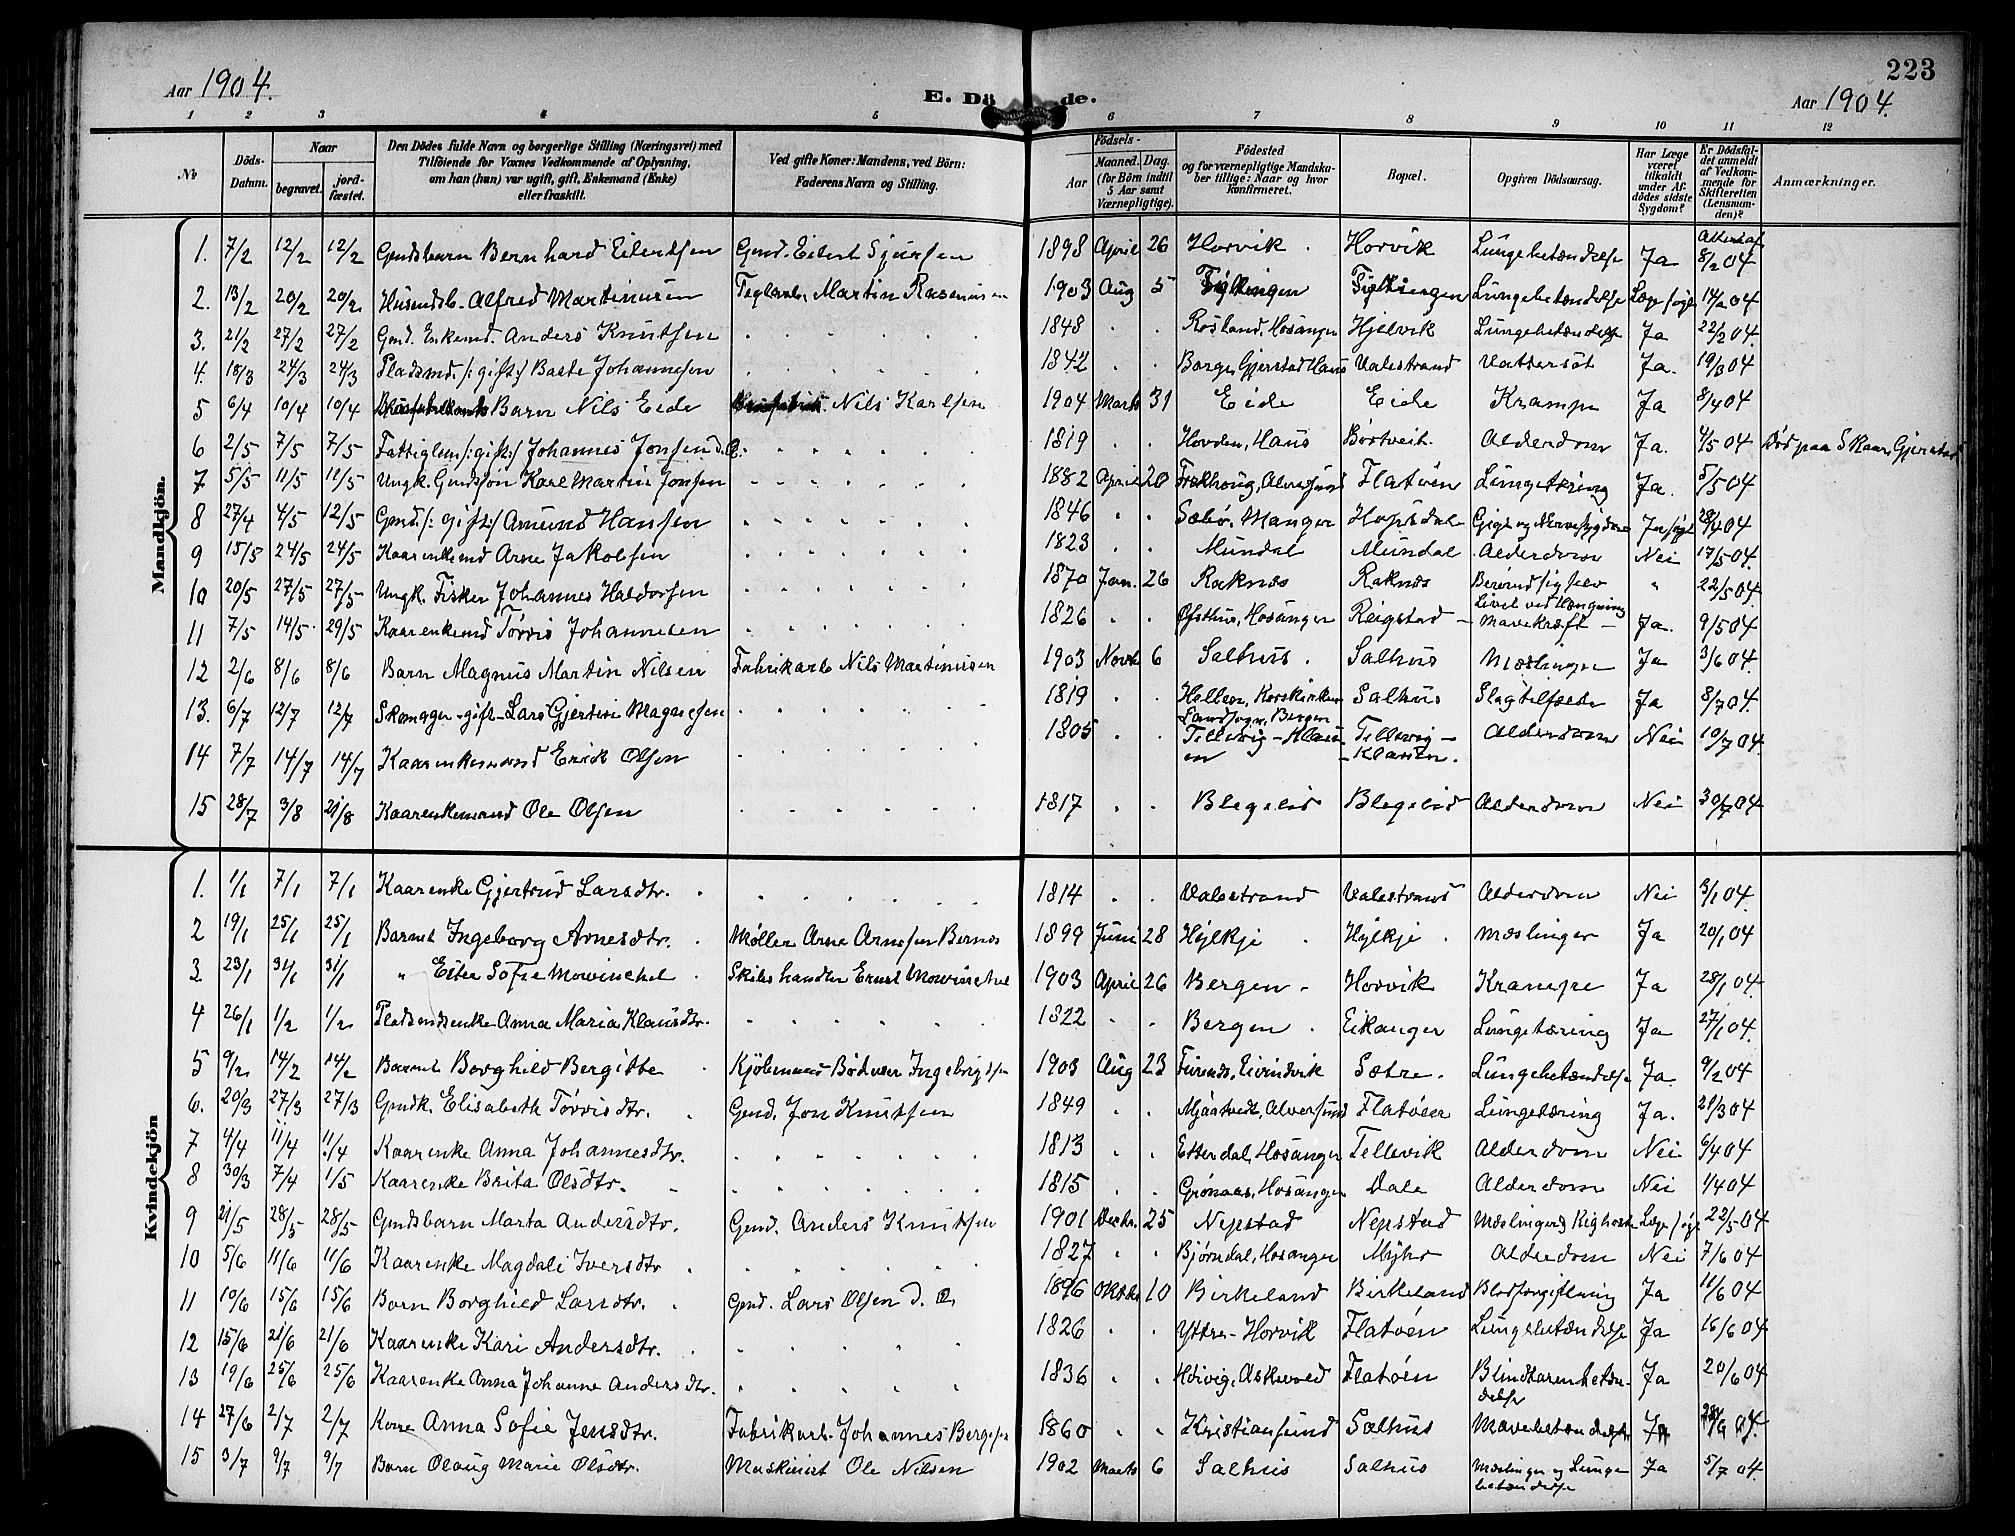 223
Aar 1904.
E. Döde.
Aar 1904.
1 2 3 4 5 6 7 8 9 10 11 12
No
Döds-Datum.
Naar
begravet.
jord-fæstet.
Den Dödes fulde Navn og borgerlige Stilling (Næringsvei) med
Tilföiende for Voxnes Vedkommende af Oplysning,
om han (hun) var ugift, gift, Enkemand (Enke)
eller fraskilt.
Ved gifte Koner: Mandens, ved Börn:
Faderens Navn og Stilling.
Födsels-
Aar
Maaned. Dag.
(for Börn indtil
5 Aar samt
Værnepligtige).
Födested
og for værnepligtige Mandska-
ber tillige: Naar og hvor
konfirmeret.
Bopæl.
Opgiven Dödsaarsag.
Har Læge
været
tilkaldt
under Af-
dödes sidste
Sygdom?
Er Dödsfal-
det anmeldt
af Vedkom-
mende for
Skifteretten
(Lensman-
den)?
Anmærkninger.
Mandkjön.
1. 7/2 12/2 12/2 Gmdsbarn Bernhard Eilertsen Gmd. Eilert Sjursen 1898 April 26 Horvik Horvik Lungebetændelse Ja 8/2 04
2. 13/2 20/2 20/2 Husmdsb. Alfred Martinusen Teglarb. Martin Rasmusen 1903 Aug 5 Lungebetændelse 14/2 04
3. 21/2 27/2 27/2 Gmd. Enkemd. Anders Knutsen 1848 Rosland, Hosanger Hjelvik Lungebetændelse Ja 22/2 04.
4. 18/3 24/3 24/3 Pladsmd. /: gift :/ Baste Johannesen 1842 Borge, Gjerstad Haus Valestrand Vattersot Ja. 19/3 04
5 6/4 10/4 10/4 Barn Nils Eide Nils Karlsen 1904 Marts 31 Eide Eide Krampe Ja 8/4 04
6 2/5 7/5 7/5 Fattiglem /: gift :/ Johannes Jonsen d. Æ. 1819 Hovden, Haus Börtveit Alderdom Ja. 4/5 04 Död paa Skaar, Gjerstad
7 5/5 11/5 11/5 Ungk. Gmdssön Karl Martin Jonsen 1882 April 20 Alversund Flatöen Lungetæring Ja. 5/5 04
8 27/4 4/5 12/5 Gmd. /: gift :/ Amund Hansen 1846 Sæbö, Manger Hopsdal Gigt og Nervesygdom 28/4 04
9 15/5 24/5 24/5 Kaarenkemd Arne Jakobsen 1823 Mundal Mundal Alderdom Nei 17/5 04.
10 20/5 27/5 27/5 Ungk. Fisker Johannes Haldorsen 1870 Jan. 26 Raknæs Raknæs Berövet sig selv " 22/5 04.
Livet ved Hængning
11 7/5 14/5 29/5 Kaarenkemd Torvis Johannesen 1826 Øfsthus, Hosanger Reigstad Mavekræft Ja. 9/5 04
12 2/6 8/6 8/6 Barn Magnus Martin Nilsen Fabrikarb Nils Martinusen 1903 Novb 6 Salhus Salhus Mæslinger Ja 3/6 04.
13. 6/7 12/7 12/7 Skomager - gift - Lars Gjertsen Magnesen 1819 Helleen, Korskirken Salhus Slagtilfælde Ja 8/7 04.
Landsogn, Bergen
14 7/7 14/7 14/7 Kaarenkemand Erik Olsen 1805 Tellevig - Klausen Tellevig - Klausen. Alderdom Nei 10/7 04.
15 28/7 3/8 21/8 Kaarenkemand Ole Olsen 1817 Blegelid Blegelid Alderdom Nei 30/7 04
Kvindekjön
1. 1/1 7/1 7/1 Kaarenke Gjertrud Larsdtr. 1814 Valestrand Valestrand Alderdom Nei 3/1 04.
2 19/1 25/1 25/1 Barnet Ingeborg Arnesdtr. Møller Arne Arnesen Bernes 1899 Juni 28 Hylkje Hylkje Mæslinger Ja 20/1 04
3 23/1 31/1 31/1 " Sofie Mowinckel Skibshandler Ernst Mowinckel 1903 April 26 Bergen Horvik Krampe Ja 28/1 04.
4 26/1 1/2 1/2 Pladsmdsenke Anna Maria Klausdtr. 1822 Bergen Eikanger Lungetæring Ja 27/1 04.
5 9/2 14/2 14/2 Barnet Borghild Bergitte Kjöbmand Bödvar Ingebrigtsen 1903 Aug 23 Eivindvik Sætre. Lungebetændelse Ja. 9/2 04
6. 20/3 27/3 27/3 Gmdk. Elisabeth Torvisdtr. Gmd. Jon Knutsen 1849 Mjaatvedt, Alversund Flatöen Lungetæring Ja. 21/3 04
7 4/4 11/4 11/4 Kaarenke Anna Johannesdtr. 1813 Etterdal, Hosanger Tellevik Alderdom Nei 6/4 04
8 30/3 7/4 1/5 Kaarenke Brita Olsdtr. 1815 Grönaas, Hosanger Dale Alderdom Nei 1/4 04
9 21/5 28/5 28/5 Gmdsbarn Marta Andersdtr. Gmd. Anders Knutsen 1901 Decbr. 25 Nepstad Nepstad Mæslinger & Kighoste 22/5 04
10 5/6 11/6 11/6 Kaarenke Magdali Iversdtr 1827 Bjørndal, Hosanger Myhr Alderdom Nei 7/6 04
11 10/6 15/6 15/6 Barn Borghild Larsdtr. Gmd. Lars Olsen d. Æ 1896 Oktbr 10 Birkeland Birkeland Blodforgiftning Ja 11/6 04
12 15/6 21/6 21/6 Kaarenke Kari Andersdtr. 1826 Yttre-Horvik Flatöen Lungebetændelse Ja 16/6 04
13 19/6 25/6 25/6 Kaarenke Anna Johanne Andersdtr. 1836 Askevold Flatöen Blindtarmbetæn-
delse Ja 20/6 04
14 27/6 2/7 2/7 Kone Anna Sofie Jensdtr. Fabrikarb. Johannes Bergesen 1860 Kristiansund Salhus Mavebetændelse Ja 28/6 04.
15 3/7 9/7 9/7 Barn Olaug Marie Olsdtr. Maskinist Ole Nilsen 1902 Marts 6 Salhus Salhus Mæslinger og Lunge-
betændelse Ja 5/7 04.